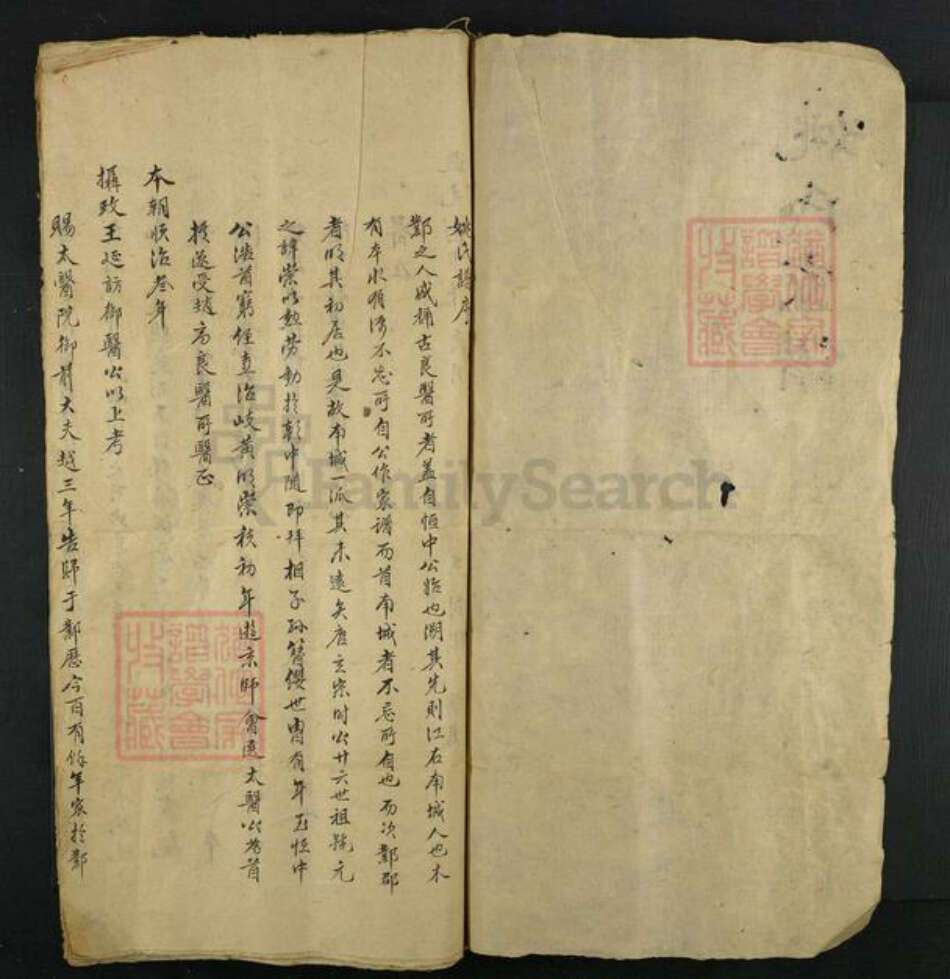 姚氏譜序
鄞之人咸稱古良醫所者蓋自恒中公始也溯其先則江右南城人也木
有本水有源不忘所自公作家譜而首南城者不忘所自也而次鄞郡
者明其初居也是故南城一派其来遠矣唐玄宗时公廿六世祖諱元
之諱崇以勲劳動於朝中随即拜相子孫簪纓世冑有年至恒中
公滋首窮經直治岐黄明崇禎初年遊京師會選太醫公為首
授遂受趙府良醫所醫正
本朝順治叁年
攝政王延訪御醫公以上考
賜太醫院御前大夫越三年告歸于鄞歷今百有餘年家於鄞
姚
譜學會
收藏
譜學會
收藏
FamilySearch